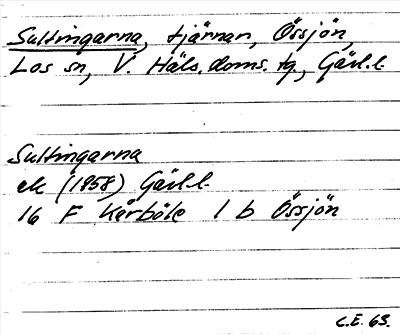 Sultingarna, tjärnar, Össjön,
Los sn, V. Häls. doms. tg, Gävl. l.
Sultingarna
ek (1958) Gävl. l.
16 F Kårböle 1 b Össjön
C.E. 63.